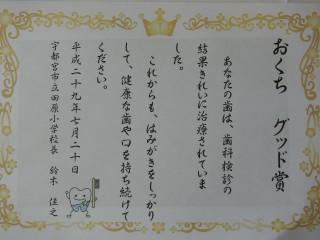 おくち　グッド賞
あなたの歯は、歯科検診の
結果きれいに治療されていま
した。
これからも、はみがきをしっかり
して、健康な歯や口を持ち続けて
ください。
平成二十九年七月二十日
宇都宮市立田原小学校長　鈴木　佳之